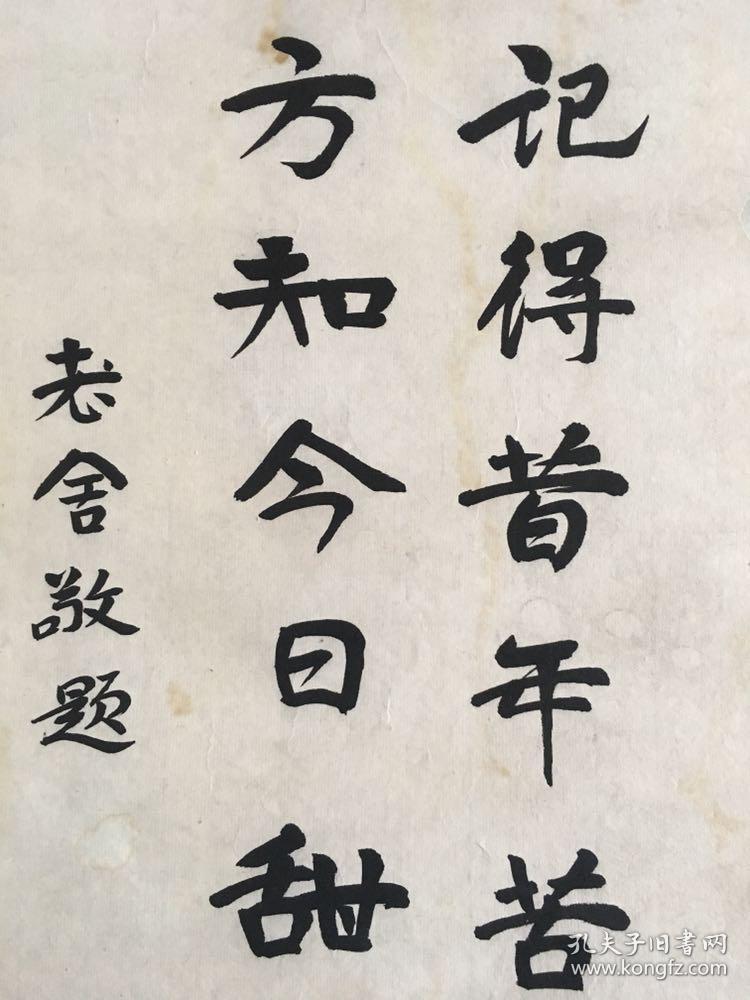 记得昔年苦
方知今日甜
老舍敬题
孔夫子旧書网
www.kongfz.com